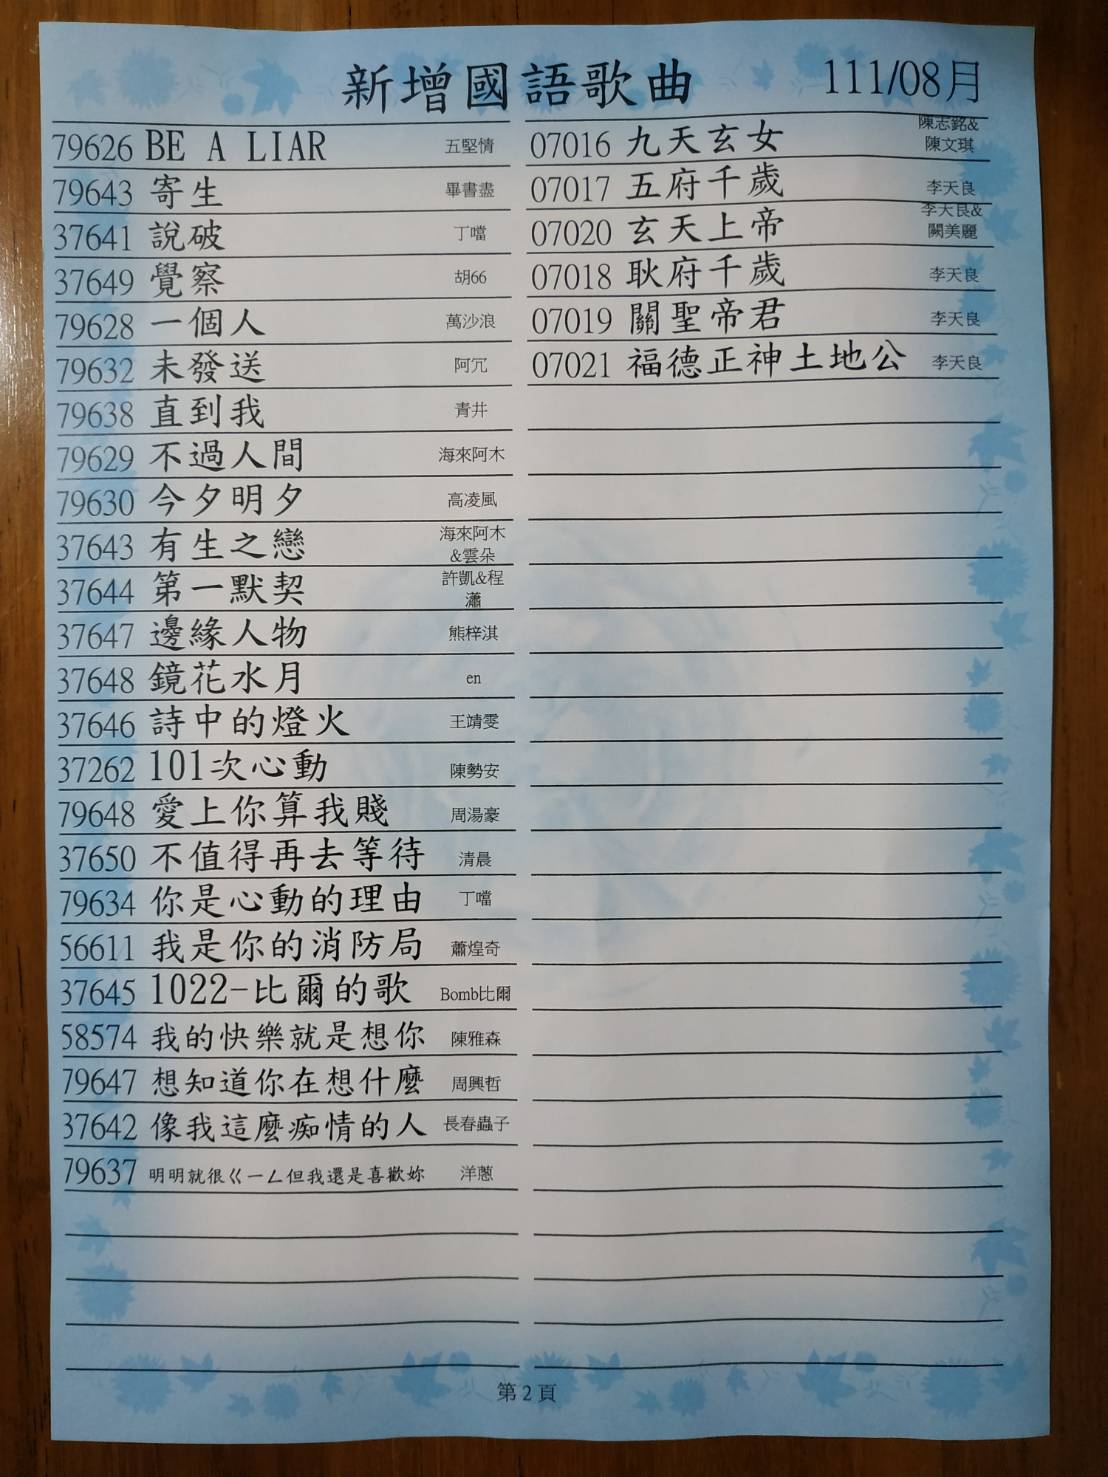 新增國語歌曲 111/08月
79626 BE A LIAR 五堅情
79643 寄生 畢書盡
37641 說破 丁噹
37649 覺察 胡66
79628 一個人 萬沙浪
79632 未發送 阿冗
79638 直到我 青井
79629 不過人間 海來阿木
79630 今夕明夕 高凌風
37643 有生之戀 海來阿木
&雲朵
37644 第一默契 許凱&程
瀟
37647 邊緣人物 熊梓淇
37648 鏡花水月 en
37646 詩中的燈火 王靖雯
37262 101次心動 陳勢安
79648 愛上你算我賤 周湯豪
37650 不值得再去等待 清晨
79634 你是心動的理由 丁噹
56611 我是你的消防局 蕭煌奇
37645 1022-比爾的歌 Bomb比爾
58574 我的快樂就是想你 陳雅森
79647 想知道你在想什麼 周興哲
37642 像我這麼痴情的人 長春蟲子
79637 明明就很ㄍㄧㄥ但我還是喜歡妳 洋蔥
07016 九天玄女 陳志銘&
陳文琪
07017 五府千歲 李天良
07020 玄天上帝 李天良&
闕美麗
07018 耿府千歲 李天良
07019 關聖帝君 李天良
07021 福德正神土地公 李天良
第2頁